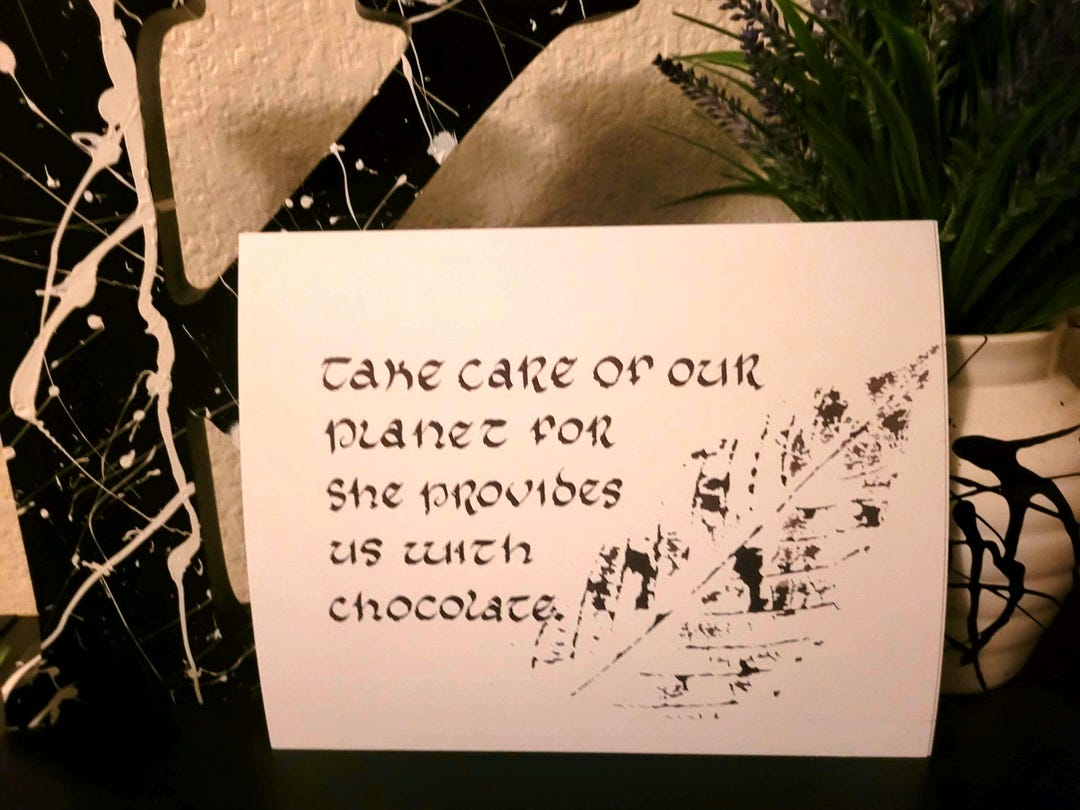 Take care of our
planet for
she provides
us with
chocolate.